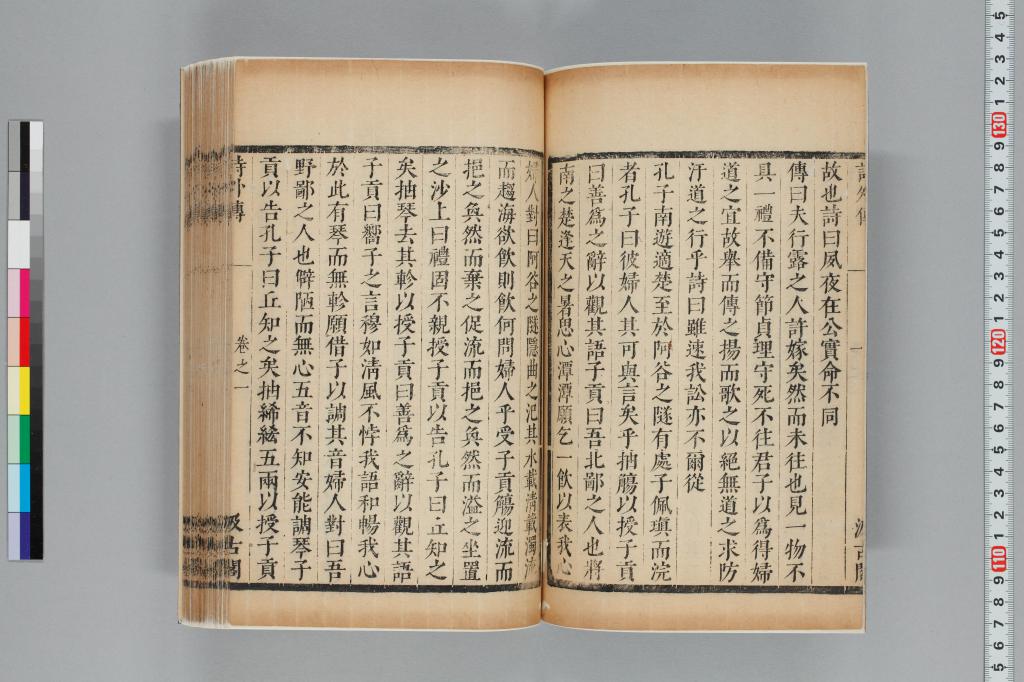 故也詩曰夙夜在公實命不同
傳曰夫行露之人許嫁矣然而未往也見一物不
具一禮不備守節貞理守死不往君子以爲得婦
道之宜故舉而傳之揚而歌之以絕無道之求防
汙道之行乎詩曰雖速我訟亦不爾從
孔子南遊適楚至於阿谷之隧有處子佩瑱而浣
者孔子曰彼婦人其可與言矣乎抽觴以授子貢
曰善爲之辭以觀其語子貢曰吾北鄙之人也將
南之楚逢天之暑思心潭潭願乞一飲以表我心
婦人對曰阿谷之隧隱曲之汜其水載清載濁流
而趨海欲飲則飲何問婦人乎受子貢觴迎流而
挹之奐然而棄之促流而挹之奐然而溢之坐置
之沙上曰禮固不親授子貢以告孔子曰丘知之
矣抽琴去其軫以授子貢曰善爲之辭以觀其語
子貢曰嚮子之言穆如清風不悖我語和暢我心
於此有琴而無軫願借子以調其音婦人對曰吾
野鄙之人也僻陋而無心五音不知安能調琴子
貢以告孔子曰丘知之矣抽絺綌五兩以授子貢
詩外傳
卷之一
汲古閣